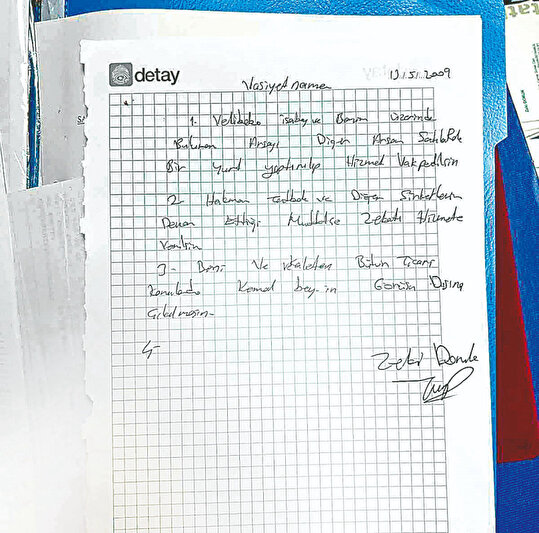 detay
Vasiyetname
13.5.2009
1. Velibaba isabey ve Benim üzerinde
Bulunan Arsayı Diğer Arsan
Bir Yurt yaptırılıp Hizmet Vakfedilsin
2- Hakman ve Diğer Şirketlerim
Devam Ettiği Müddetçe Zekatı Hizmete
Verilsin
3- Beni Ve vekaleten Bütün Ticari
Konularda Kemal bey-in Görüşü Dışına
Çıkılmasın-
4-
Zeki